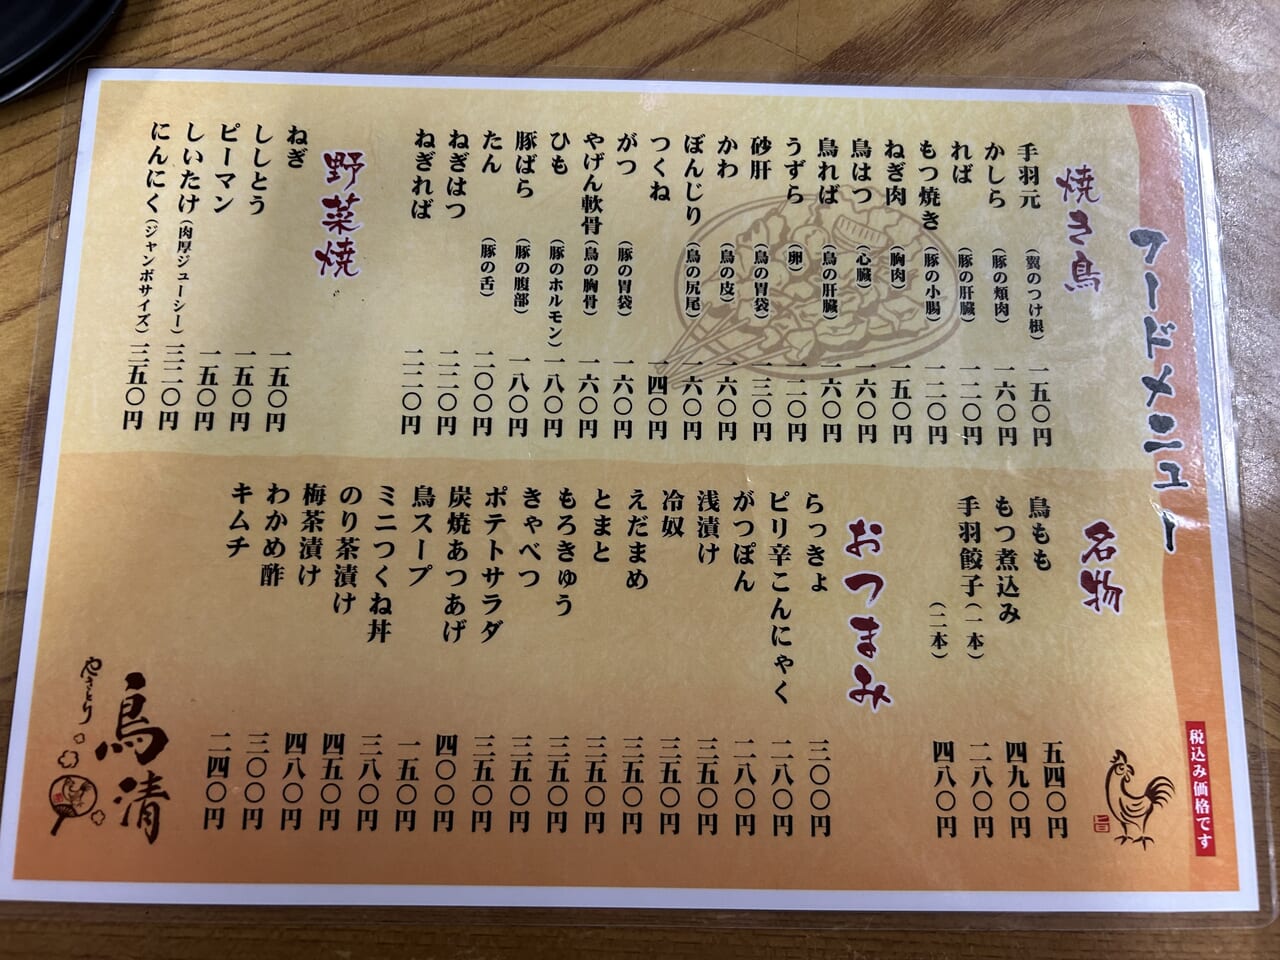 フードメニュー
税込み価格です
焼き鳥
手羽元（翼のつけ根）一五〇円
かしら（豚の頬肉）一六〇円
れば（豚の肝臓）一二〇円
もつ焼き（豚の小腸）一二〇円
ねぎ肉（胸肉）一五〇円
鳥はつ（心臓）一六〇円
鳥れば（鳥の肝臓）一六〇円
うずら（卵）一二〇円
砂肝（鳥の胃袋）一三〇円
かわ（鳥の皮）一六〇円
ぼんじり（鳥の尻尾）一六〇円
つくね 一四〇円
がつ（豚の胃袋）一六〇円
やげん軟骨（鳥の胸骨）一六〇円
ひも（豚のホルモン）一八〇円
豚ばら（豚の腹部）一八〇円
たん（豚の舌）二〇〇円
ねぎはつ 二二〇円
ねぎれば 二二〇円
野菜焼
ねぎ 一五〇円
ししとう 一五〇円
ピーマン 一五〇円
しいたけ（肉厚ジューシー）三二〇円
にんにく（ジャンボサイズ）三五〇円
名物
鳥もも 五四〇円
もつ煮込み 四九〇円
手羽餃子（一本）二八〇円
（二本）四八〇円
おつまみ
らっきょ 三〇〇円
ピリ辛こんにゃく 二八〇円
がつぽん 二八〇円
浅漬け 三五〇円
冷奴 三五〇円
えだまめ 三五〇円
とまと 三五〇円
もろきゅう 三五〇円
きゃべつ 三五〇円
ポテトサラダ 三五〇円
炭焼あつあげ 四〇〇円
鳥スープ 一五〇円
ミニつくね丼 三八〇円
のり茶漬け 四五〇円
梅茶漬け 四八〇円
わかめ酢 三〇〇円
キムチ 二四〇円
やきとり
鳥清